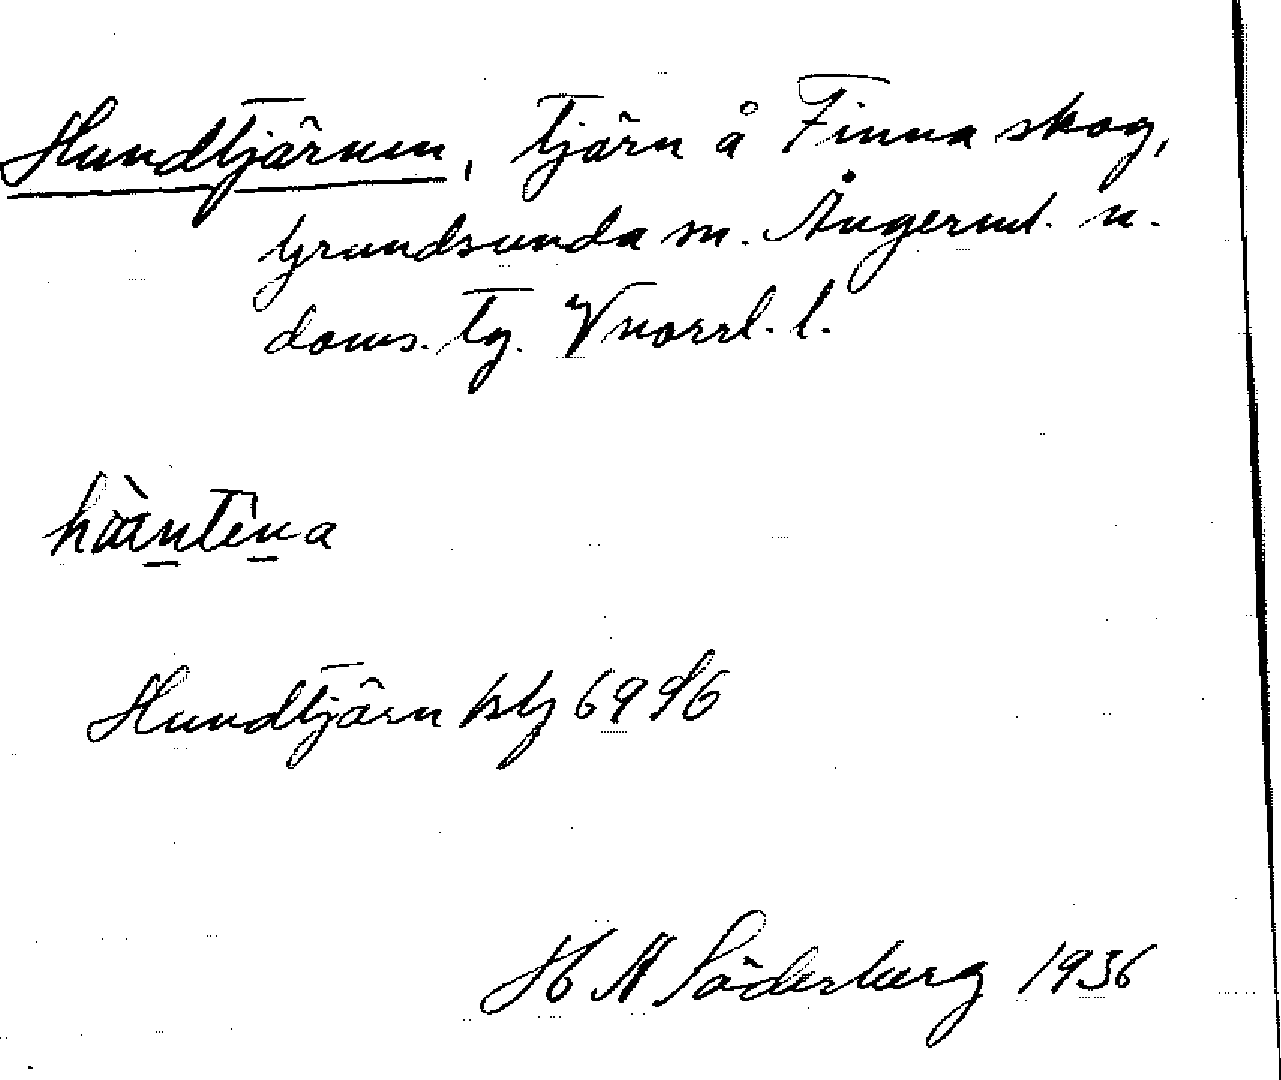 Hundtjärnen, tjärn å Finna skog,
Grundsunda sn. Ångerml. n.
doms. tg. Vnorrl. l.
Hundtjärn kbl 69 96
H Söderberg 1936